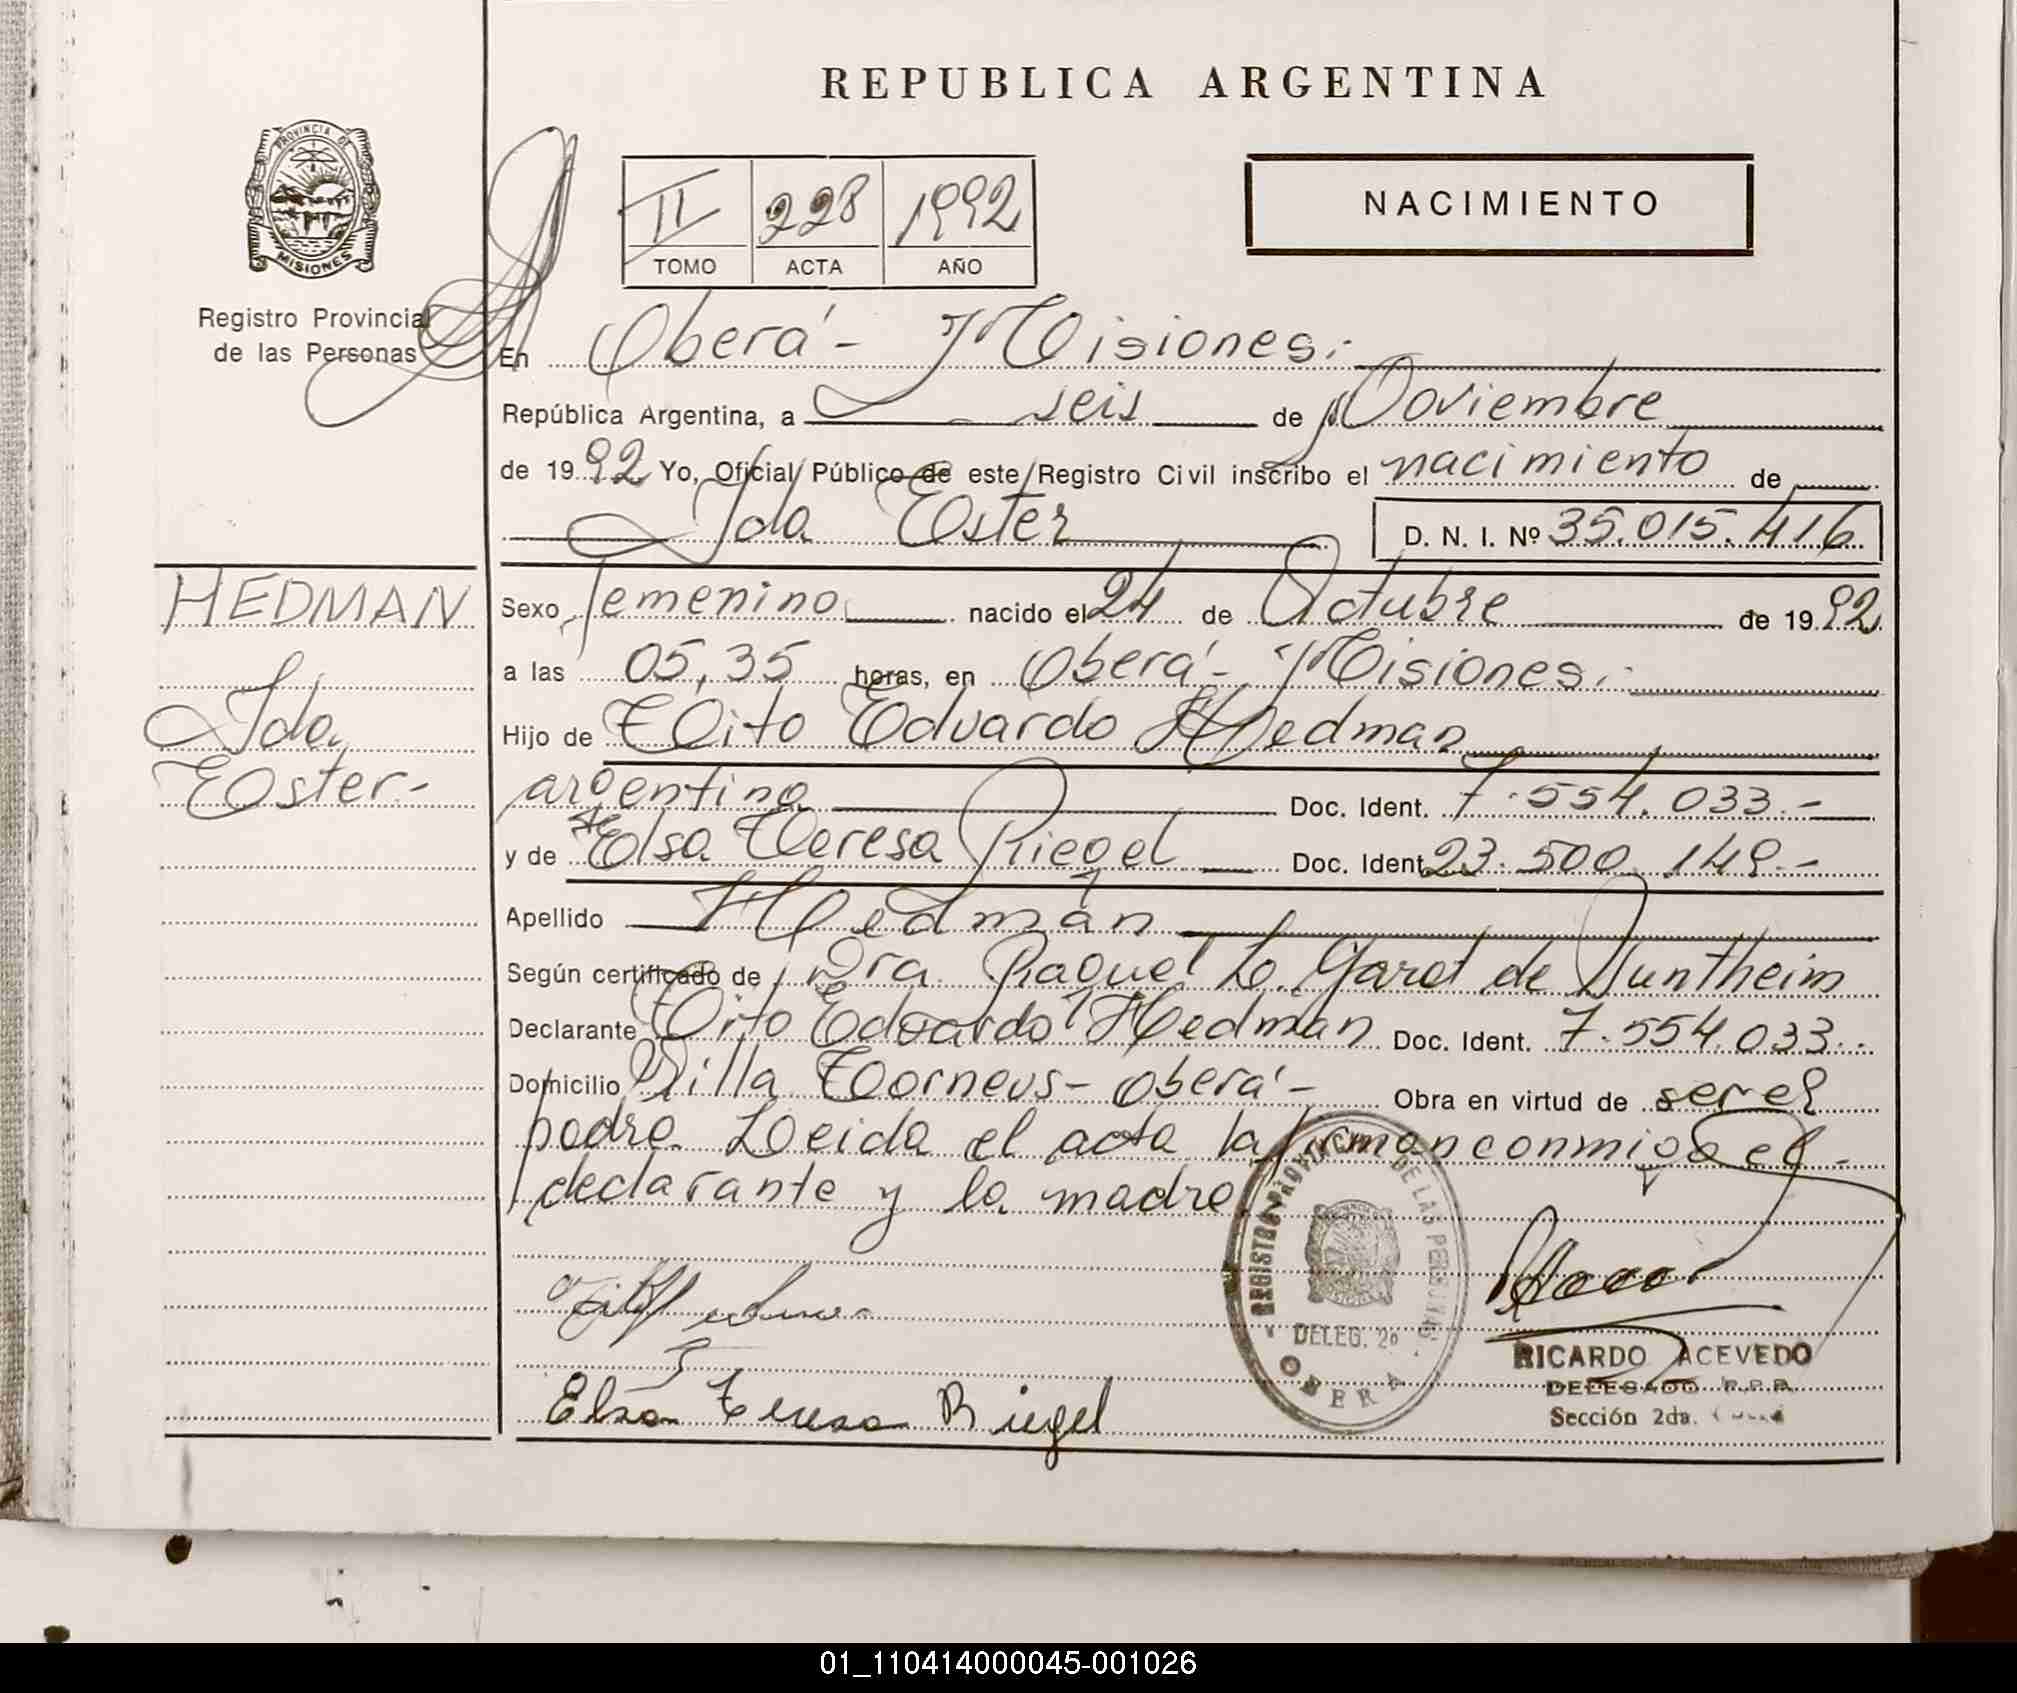 REPUBLICA ARGENTINA
PROVINCIA DE
MISIONES
Registro Provincial
de las Personas
II 228 1992
TOMO ACTA AÑO
NACIMIENTO
En Oberá - Misiones.-
República Argentina, a seis de Noviembre
de 1992 Yo, Oficial Público de este Registro Civil inscribo el nacimiento de
Ida Ester D. N. I. Nº 35.015.416
HEDMAN
Ida
Ester-
Sexo femenino nacido el 24 de Octubre de 1992
a las 05,35 horas, en Oberá - Misiones.-
Hijo de Tito Eduardo Hedman
argentino Doc. Ident. 7.554.033.-
y de Elsa Teresa Riegel Doc. Ident. 23.500.149.-
Apellido Hedman
Según certificado de Dra. Raquel L. Garet de Suntheim
Declarante Tito Eduardo Hedman Doc. Ident. 7.554.033.-
Domicilio Villa Torneus - Oberá - Obra en virtud de ser el
padre. Leida el acta la firman conmigo el -
declarante y la madre
REGISTRO PROVINCIAL DE LAS PERSONAS
DELEG. 2º
OBERA
RICARDO ACEVEDO
DELEGADO R.P.P.
Sección 2da.
Elsa Teresa Riegel
01_110414000045-001026